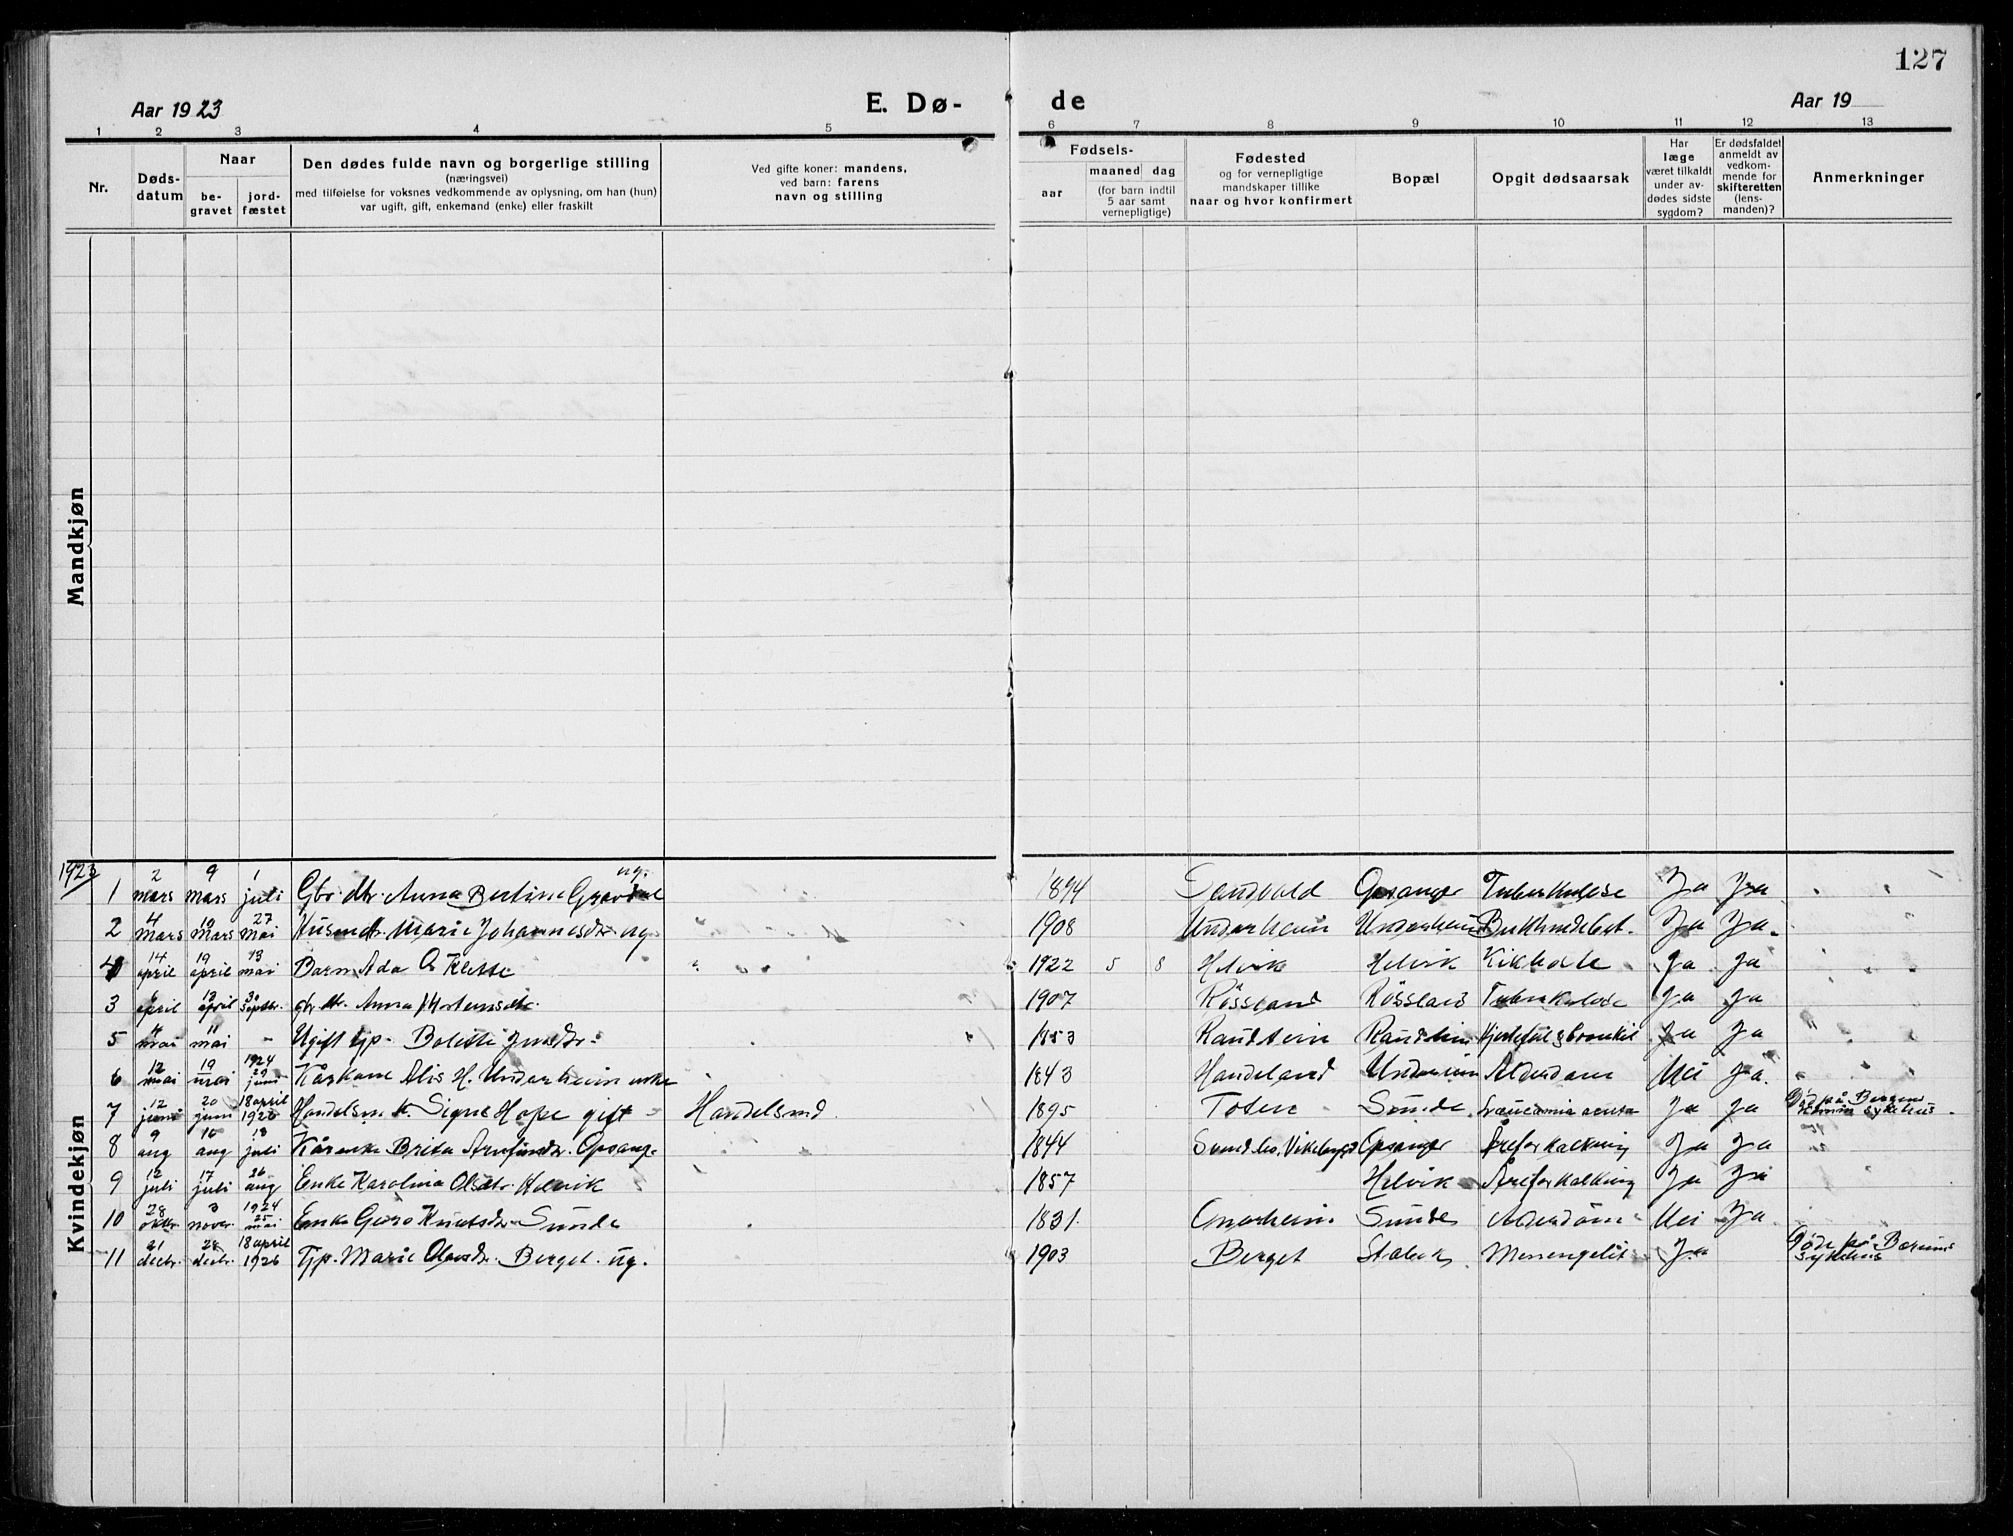 127
Aar 1923
E. Dø-
de
Aar 19
1 2 3 4 5 6 7 8 9 10 11 12 13
Nr.
Døds-
datum
Naar
be-
gravet
jord-
fæstet
Den dødes fulde navn og borgerlige stilling
(næringsvei)
med tilføielse for voksnes vedkommende av oplysning, om han (hun)
var ugift, gift, enkemand (enke) eller fraskilt
Ved gifte koner: mandens,
ved barn: farens
navn og stilling
Fødsels-
aar
maaned dag
(for barn indtil
5 aar samt
vernepligtige)
Fødested
og for vernepligtige
mandskaper tillike
naar og hvor konfirmert
Bopæl
Opgit dødsaarsak
Har
læge
været tilkaldt
under av-
dødes sidste
sygdom?
Er dødsfaldet
anmeldt av
vedkom-
mende for
skifteretten
(lens-
manden)?
Anmerkninger
Mandkjøn
Kvindekjøn
1923
1 2 mars 9 mars 1 juli Gbr. dtr. Anna Bertine ug. 1894 Opsanger Tuberkulose Ja Ja
2 4 mars 10 mars 27 mai Husm.dtr. Marie Johannesdtr. ug. 1908 Underheim Underheim Ja Ja.
4 14 april 19 april 13 mai Barn Ada O Klette 1922 5 8 Helvik Helvik Kikhoste Ja Ja
3 6 april 12 april 30 septbr. Anna Mortensdtr. 1907 Røssland Røssland Tuberkulose Ja Ja
5 4 mai 11 mai - Ugift tjp. Bolette 1853 Handstein Ja Ja
6 12 mai 19 mai 1924 29 juni Kårkone Alis H. Underheim enke 1843 Handeland Underheim Alderdom Nei Ja.
7 12 juni 20 juni 18 april 1926 Handelsm. k. Signe Hope gift Handelsmd. 1895 Toten Sunde Leucæmia acuta Ja Ja Død på Bergens sykehus.
8 9 aug 16 aug 18 juli Kårenke Brita Opsang. 1844 Opsanger Åreforkalkning Ja Ja
9 12 juli 17 juli 26 aug Enke Karolina Olsdtr. Helvik 1857 Helvik Åreforkalkning Ja Ja
10 28 oktbr. 3 novbr. 1924 25 mai Enke Guro Knutsdtr. Sunde 1831. Omarheim Sunde Alderdom Nei Ja
11 21 decbr. 28 decbr. 18 april 1926 Tjp. Marie Olavsdtr. Berget. ug. 1903 Berget Stabek Menengelit Ja Døde på Bærums sykehus